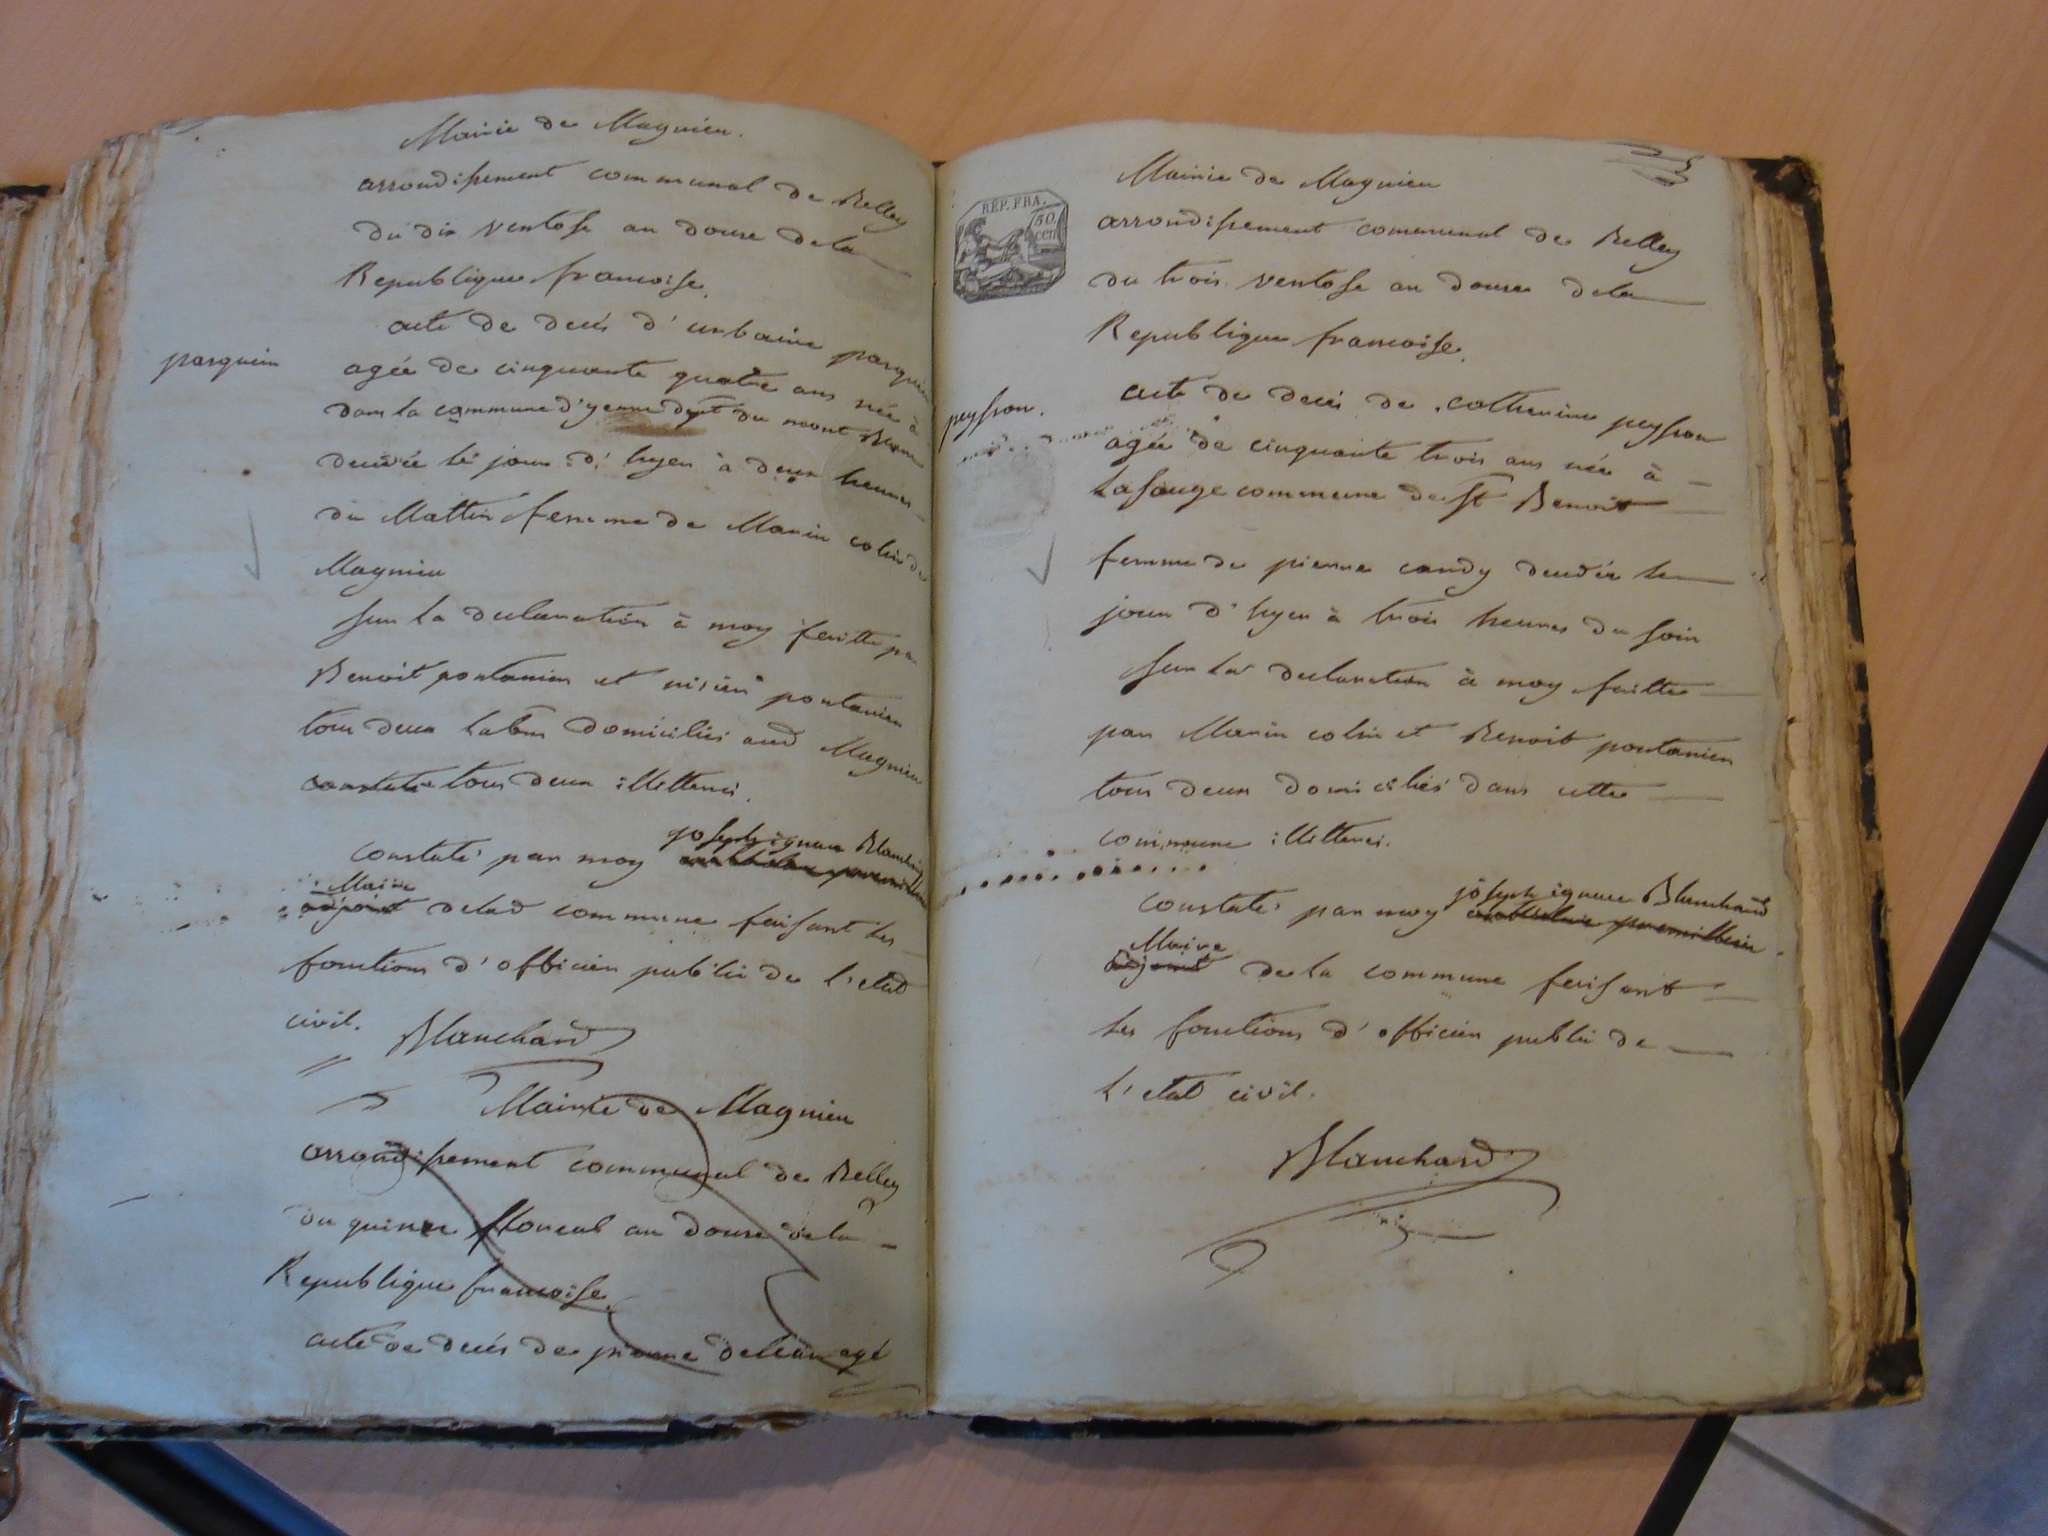 Mairie de Magnieu.
arrondissement communal de Belley
du dix ventose an douse dela
Republique francoise.
acte de decés d'urbaine parquin
parquin
agée de cinquante quatre ans née à
dans la commune d'yenne dept du mont Blanc
decedée le jour d'hyer à deux heures
du Mattin femme de Marin colin de
Magnieu
sur la declaration à moy faitte par
Benoit pontanier et pontanier
tous deux labrs domiciliés aud Magnieu
constate tous deux illitterés.
joseph ignace Blanchard
constaté par moy
Maire
adjoint delad commune faisant les
fonctions d'officier public de l'etat
civil. Blanchard
Mairie de Magnieu
arrondissement communal de Belley
du quinze floreal an douse dela
Republique francoise.
acte de decés de pierre agé
Mairie de Magnieu
REP. FRA.
50
cen
arrondissement communal de Belley
du trois ventose an douse dela
Republique francoise.
acte de decés de catherine peysson
peysson.
agée de cinquante trois ans née à
Lasauge commune de St Benoit
femme de pierre candy decedée le
jour d'hyer à trois heures du soir
sur la declaration à moy faitte
par Marin colin et Benoit pontanier
tous deux domiciliés dans cette
commune illitterés.
joseph ignace Blanchard
constaté par moy
Maire
adjoint de la commune faisant
les fonctions d'officier public de
l'etat civil.
Blanchard